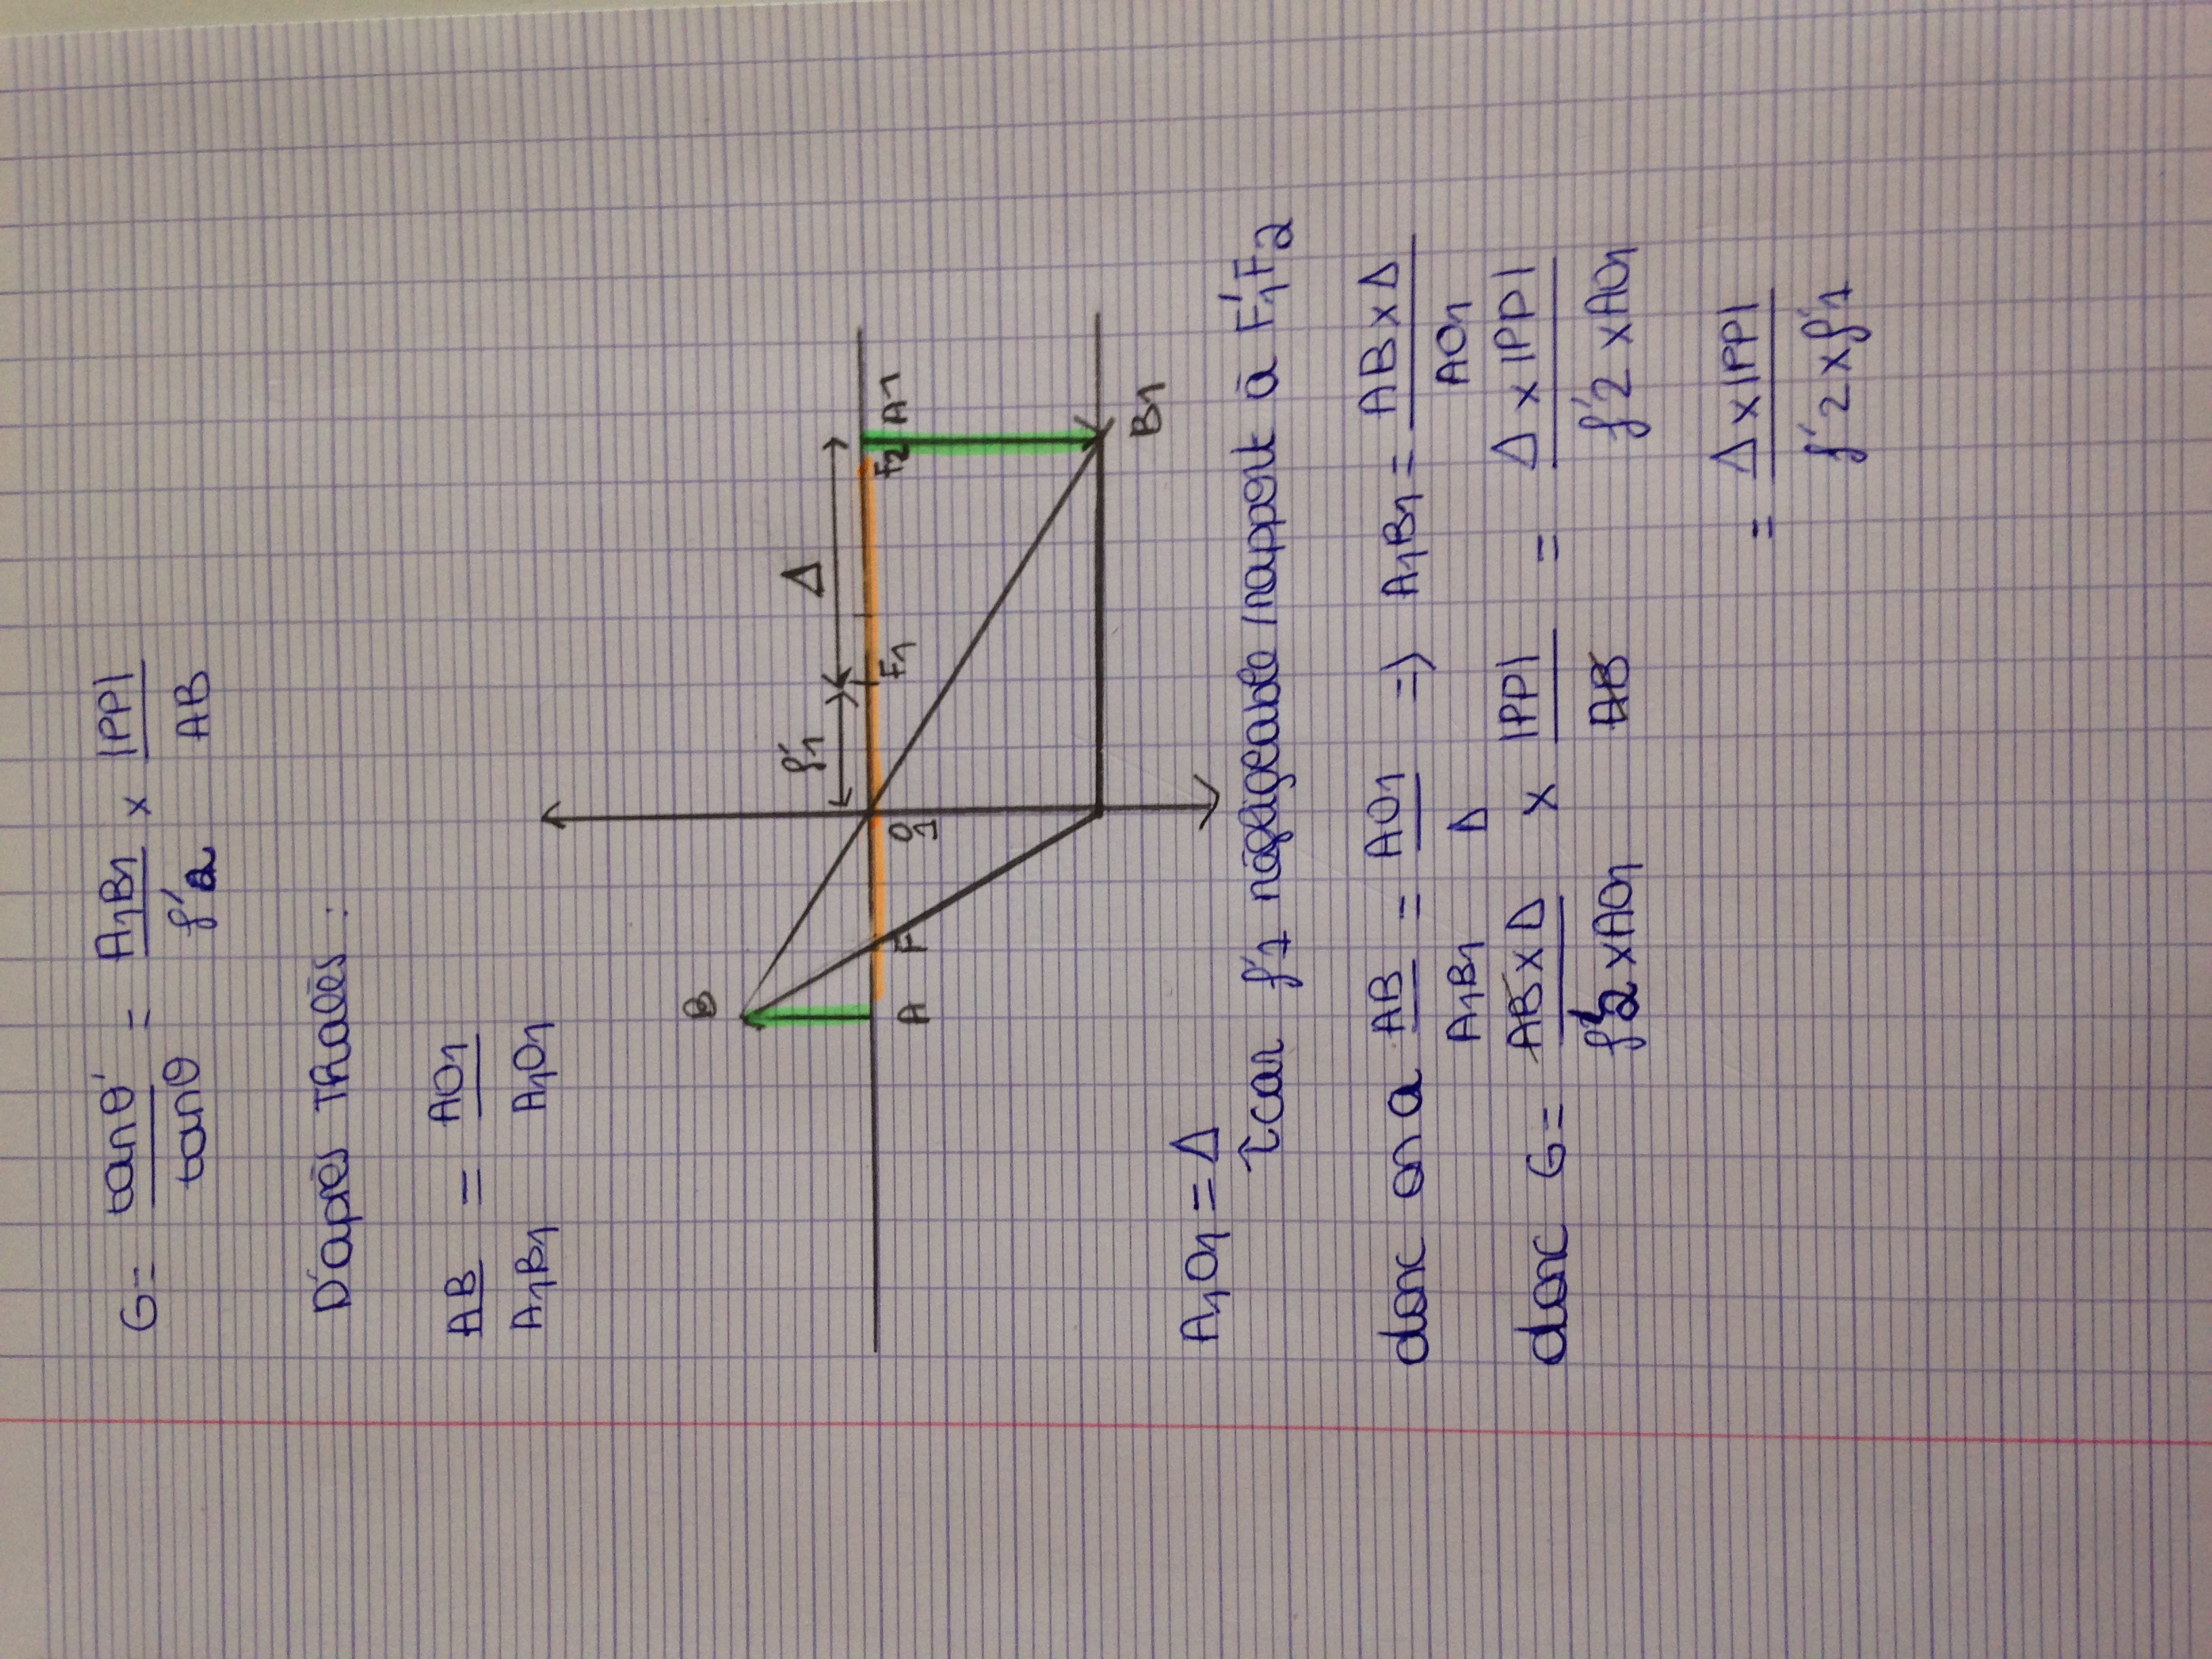 G = tanθ' / tanθ = A₁B₁ / f'2 × |PP| / AB
D'après Thalès :
AB / A₁B₁ = AO₁ / A₁O₁
B
f'1 Δ
A F O1 F1 F2 A1
B1
A₁O₁ = Δ
↑ car f'1 négligeable / rapport à F'1F2
donc on a AB / A₁B₁ = AO1 / Δ => A₁B₁ = AB × Δ / AO1
donc G = AB × Δ / f'2 × AO1 × |PP| / AB = Δ × |PP| / f'2 × AO1
= Δ × |PP| / f'2 × f'1